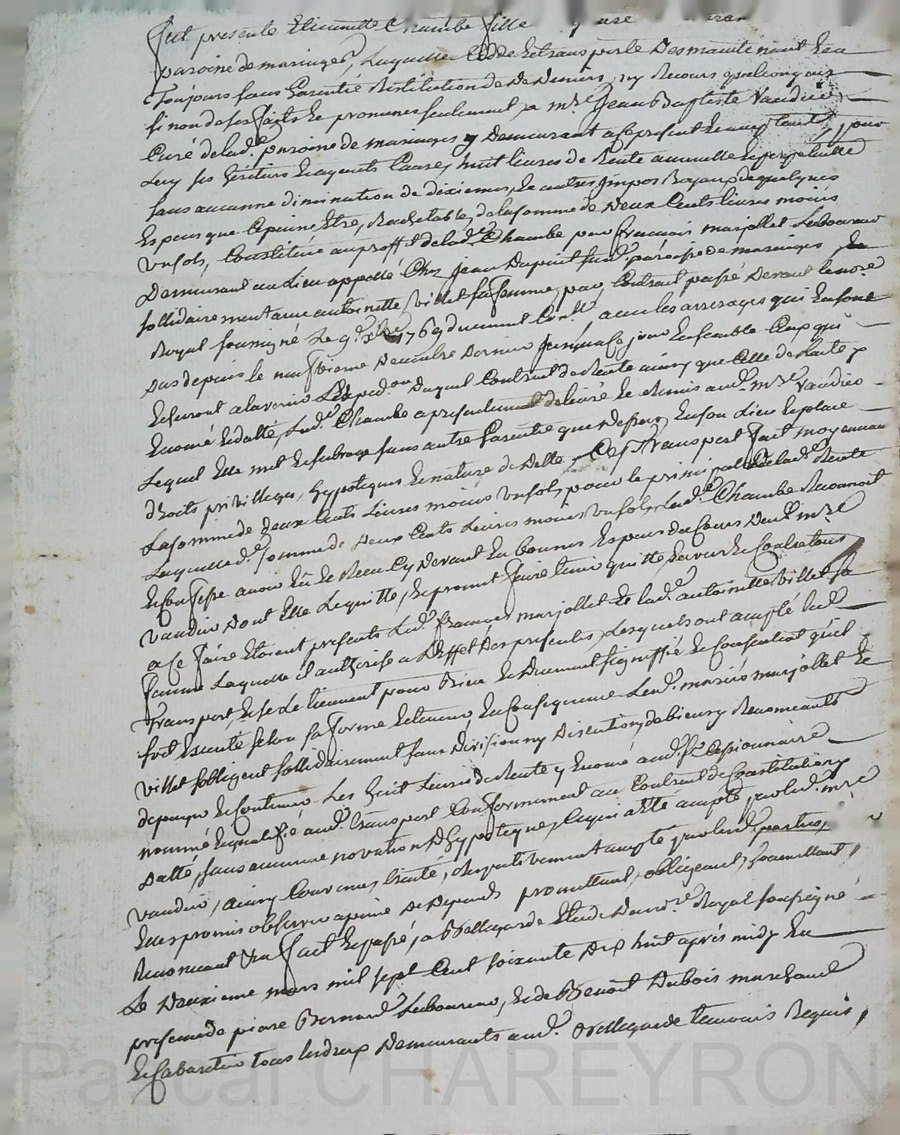 fut présente Etiennette Chambe fille
paroisse de maringes, Laquelle Cedde Et transporte Des maintenant Et a
Toujours sans Garentie Restitution de De Deniers, ny Recours quelconques
si non de ses faits Et promesses seulement, a mre Jean Baptiste Vaudier
Curé de lad. paroisse de maringes y Demeurant a Ce présent Et acceptant, pour
Luy ses heritiers Et ayants Cause, huit livres de Rente annuelle Et perpetuelle
sans aucunne diminution de dixiemes, Et autres Impos Royaux de quelques
Especes que Ce puisse Etre, Rachetable, de la somme de Deux Cents livres moins
un sols, Constituée au proffit de lad. Chambe par françois marjollet Laboureur
Demeurant au Lieu appellé Chez Jean Dupuit susd. paroisse de maringes Et
sollidairement avec antoinette Villet sa femme, par Contract passé Devant le nore
Royal soussigné Le 9e xbre 1769 duement Conllé, avec les arrerages qui En sont
dus depuis le neufvieme Decembre Dernier Jusqu'a Ce jour Ensemble Ceux qui
Echeront a lavenir L'Expedon Duquel Contract de Rente ainsy que Celle de l'acte y
Enoncé Et datté, Lad. Chambe a présentement delivré Et Remis aud. mre Vaudier
Lequel Elle met Et subroge sans autre Garentie que Dessus, En son Lieu Et place
droits privilleges, hypoteques Et nature de Dette, Ce Transport fait moyennant
La somme de Deux Cents Livres moins un sols, pour le principal de lad. Rente
Laquelle d. somme de Deux Cents Livres moins un sols, Lad. Chambe Reconnoit
Et Confesse avoir Eü Et Reçu Cy Devant En bonnes Especes du Cours Dud. mre
Vaudier Dont Elle Le quitte, Et promet faire tenir quitte Envers Et Contre tous
a Ce faire Etoient présents Led. françois marjollet Et lad. antoinette Villet sa
femme Laquelle il authorise a L'Effet Des présentes, Lesquels ont accepté Led.
Transport Et se Le tiennent pour Bien Et Duement signiffié Et Consentent qu'il
soit Executé selon sa forme Et teneur, En Consequence Lesd. mariés marjollet Et
Villet s'obligent sollidairement sans Division ny Discution de biens y Renonceants
de payer Et Continuer Les huit Livres de Rente y Enoncé aud. sr Cessionnaire
nommé Et qualifié aud. Transport Conformement au Contract de Constitution y
Datté, sans aucunne novation D'hypoteque, Ce qui a Eté accepté par led. mre
Vaudier, ainsy Convenus, traité, Respectivement accepté par lesd. parties,
Et les promis observer a peine de Depends promettant, obligeant, soumettant,
Renonceant &a fait Et passé, a Bellegarde Etude Dud. nore Royal soussigné
Le Deuxieme mars mil sept Cent soixante Dix huit après midy En
présence de piere Bernard Laboureur, Et de Benoit Dubois marchand
Et Cabaretier tous les deux Demeurants aud. Bellegarde temoins Requis,
Pascal CHAREYRON